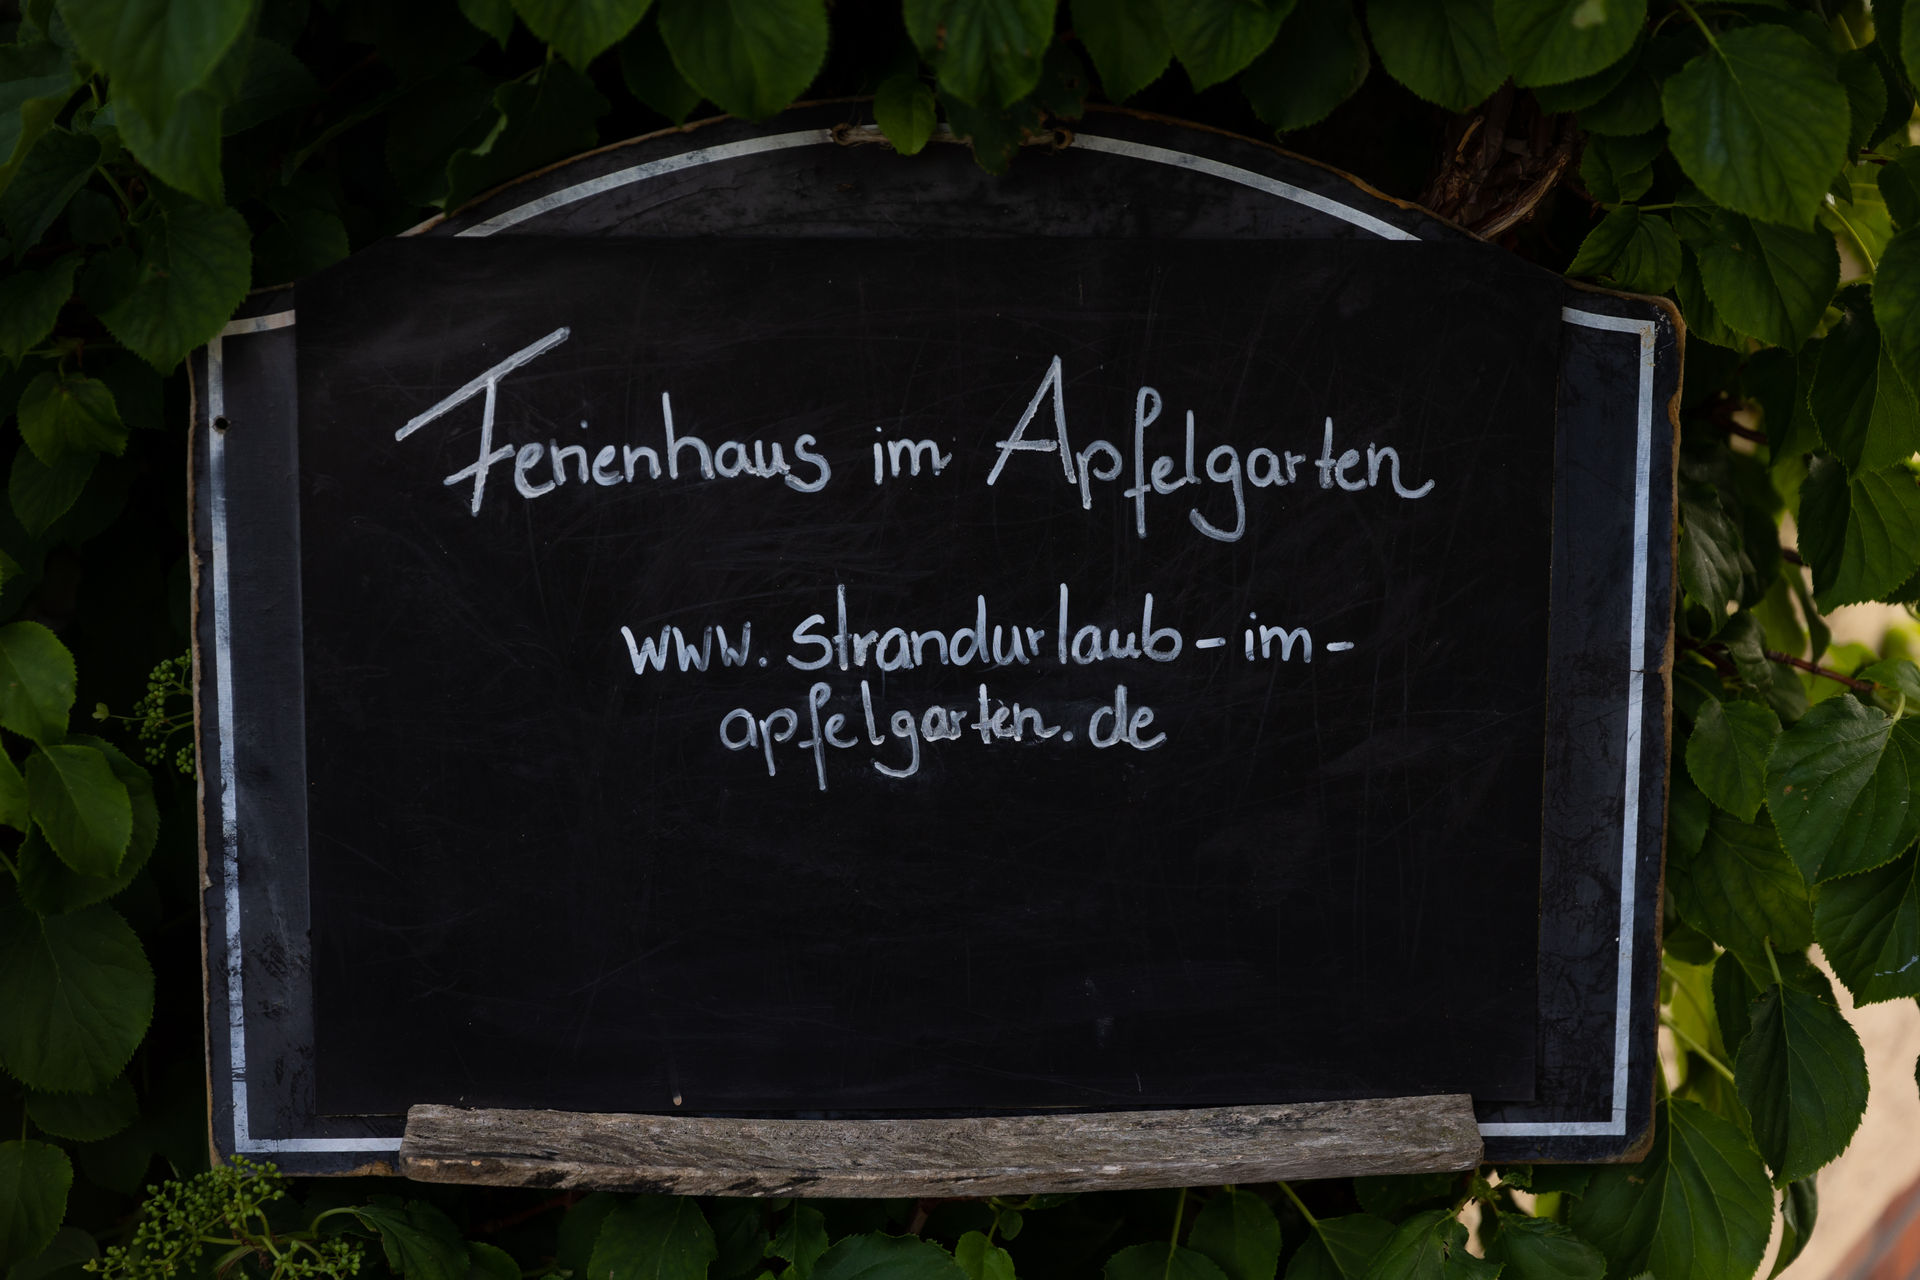 Ferienhaus im Apfelgarten
www.strandurlaub-im-
apfelgarten.de